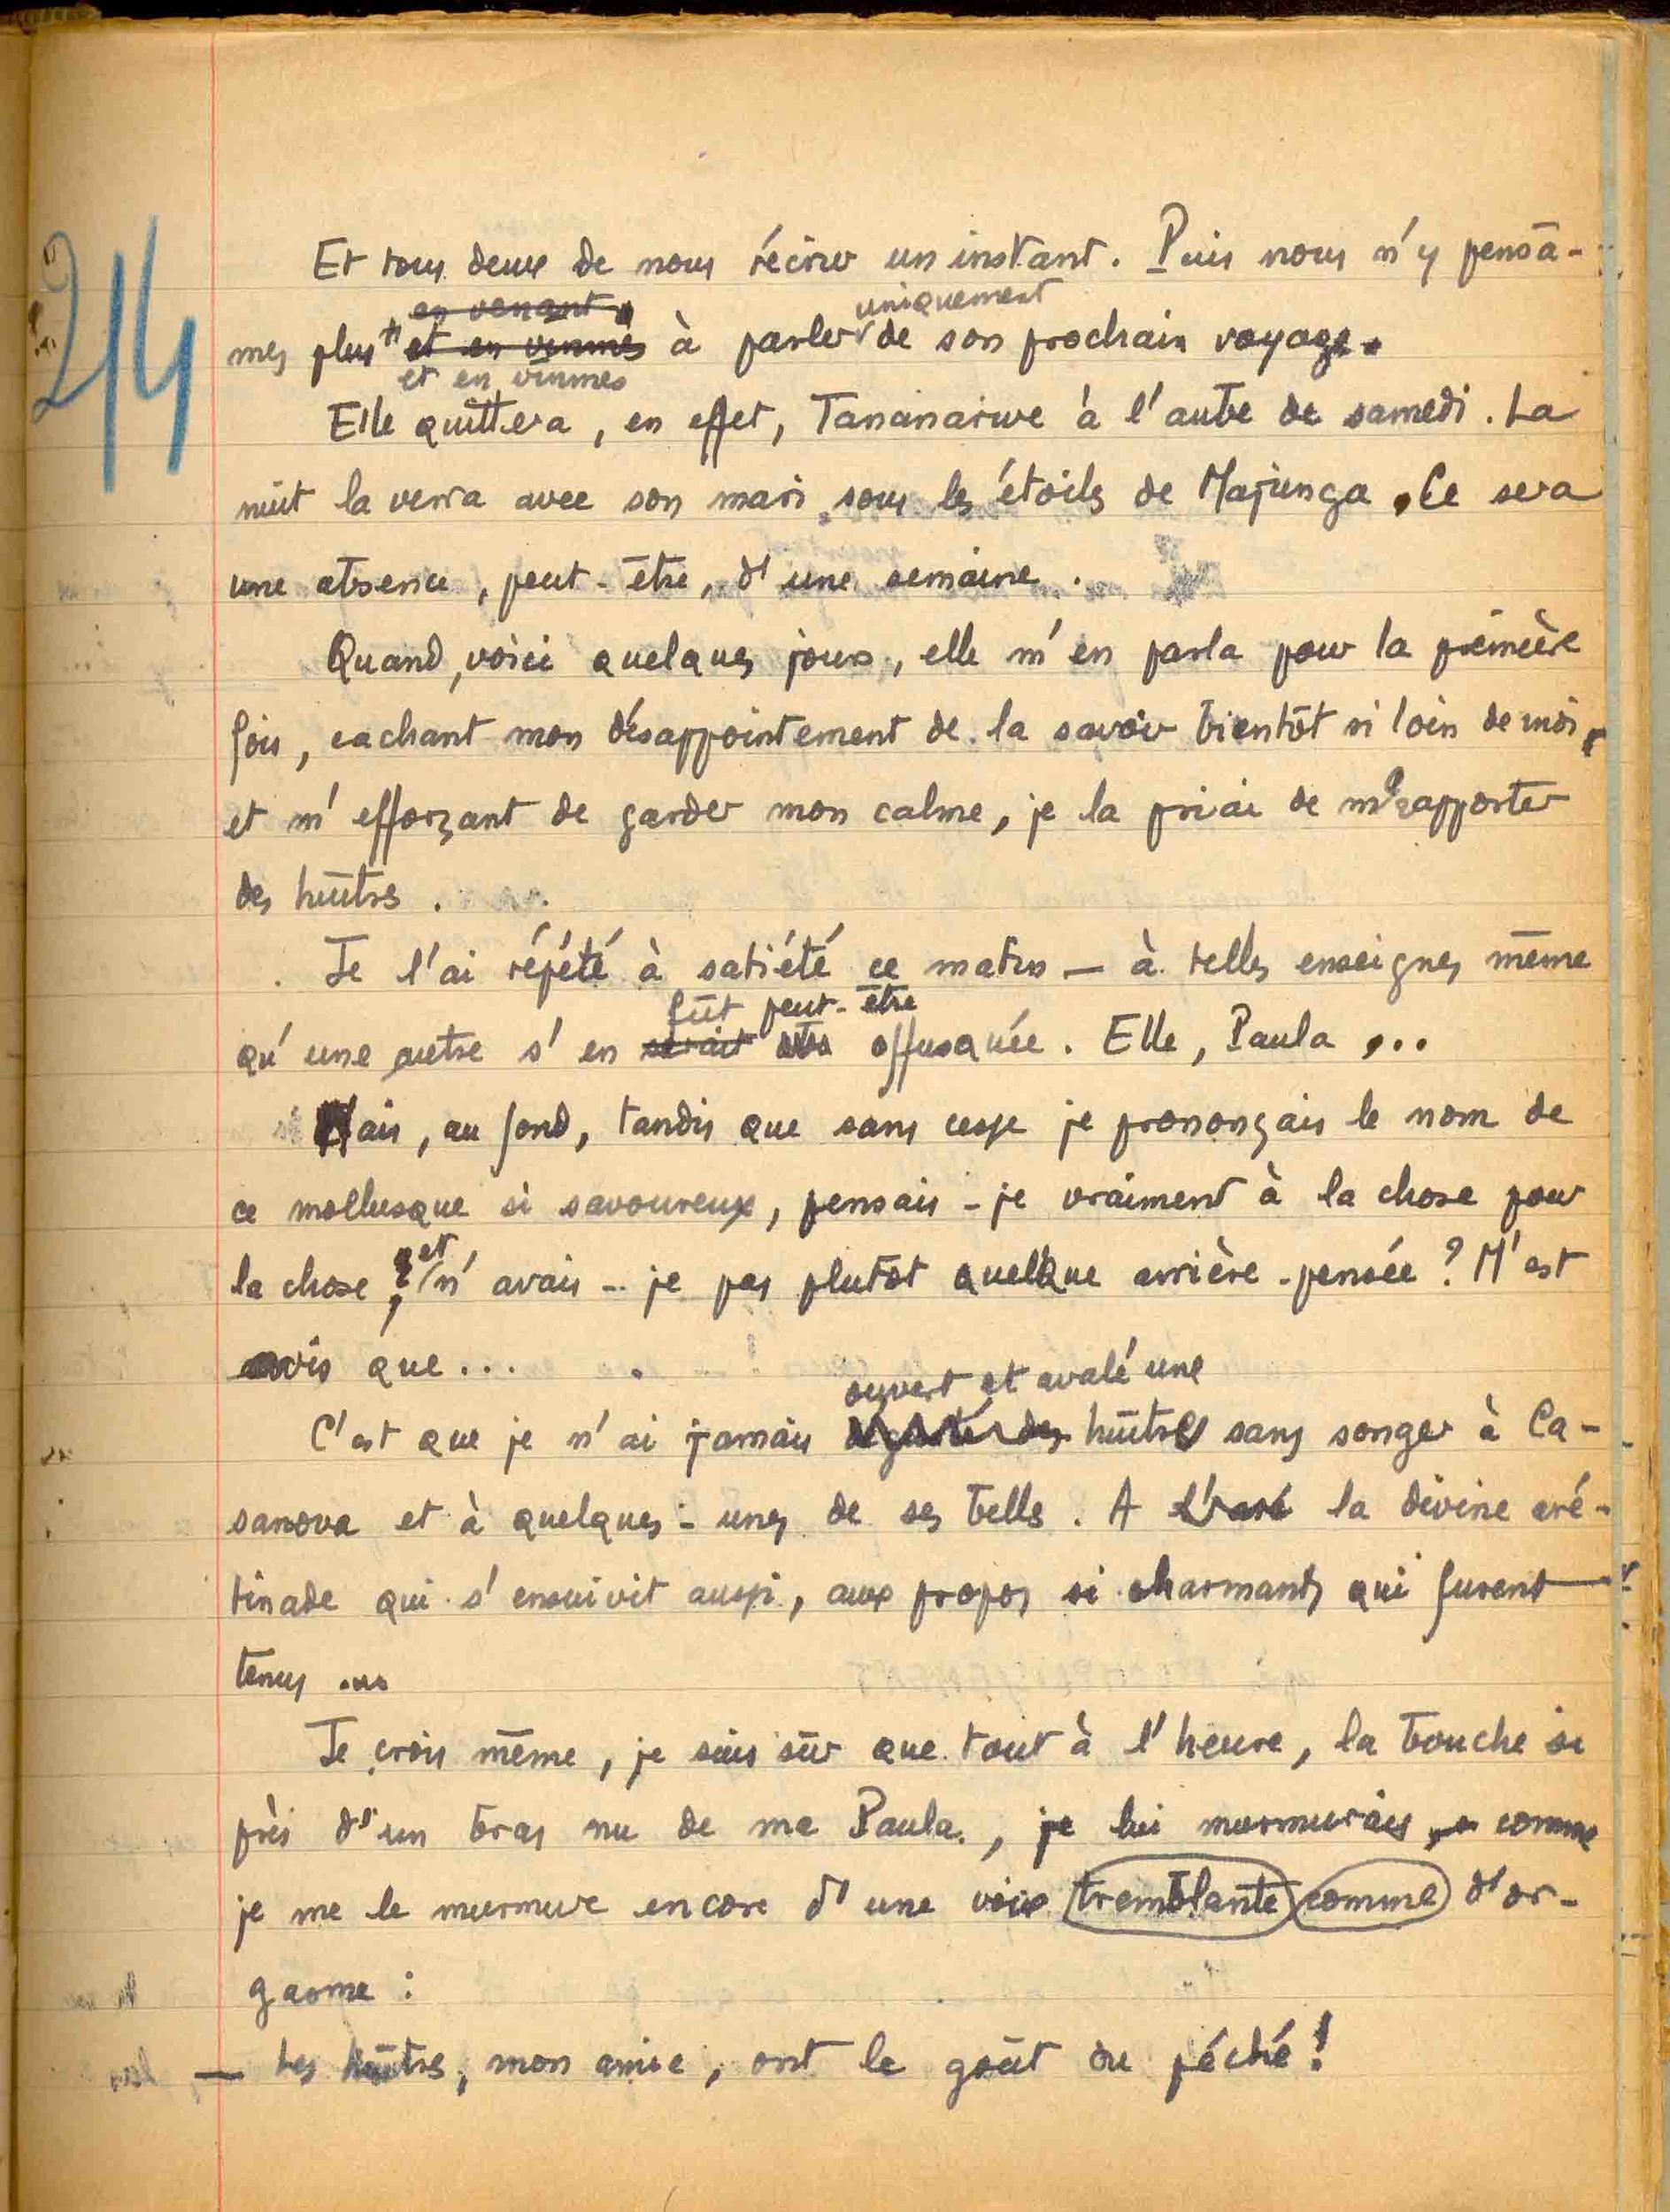 214
Et tous deux de nous récrier un instant. Puis nous n'y pensâ-
en venant
uniquement
mes plus et en vinmes à parler de son prochain voyage.
et en vînmes
Elle quittera, en effet, Tananarive à l'aube de samedi. La
nuit la verra avec son mari sous les étoiles de Majunga. Ce sera
une absence, peut-être, d'une semaine.
Quand, voici quelques jours, elle m'en parla pour la première
fois, cachant mon désappointement de la savoir bientôt si loin de moi,
et m'efforçant de garder mon calme, je la priai de m'rapporter
des huîtres.
Je l'ai répété à satiété ce matin — à telles enseignes même
fût peut-être
qu'une autre s'en serait offusquée. Elle, Paula ...
Mais, au fond, tandis que sans cesse je prononçais le nom de
ce mollusque si savoureux, pensais-je vraiment à la chose pour
et
la chose, n'avais-je pas plutôt quelque arrière-pensée ? M'est
avis que...
ouvert et avalé une
C'est que je n'ai jamais dégusté des huître sans songer à Ca-
sanova et à quelques-unes de ses belles. A la divine aré-
tinade qui s'ensuivit aussi, aux propos si charmants qui furent
tenus ...
Je crois même, je suis sûr que tout à l'heure, la bouche si
près d'un bras nu de ma Paula, je lui murmurais comme
je me le murmure encore d'une voix tremblante comme d'or-
gasme :
— Les huîtres, mon amie, ont le goût du péché !